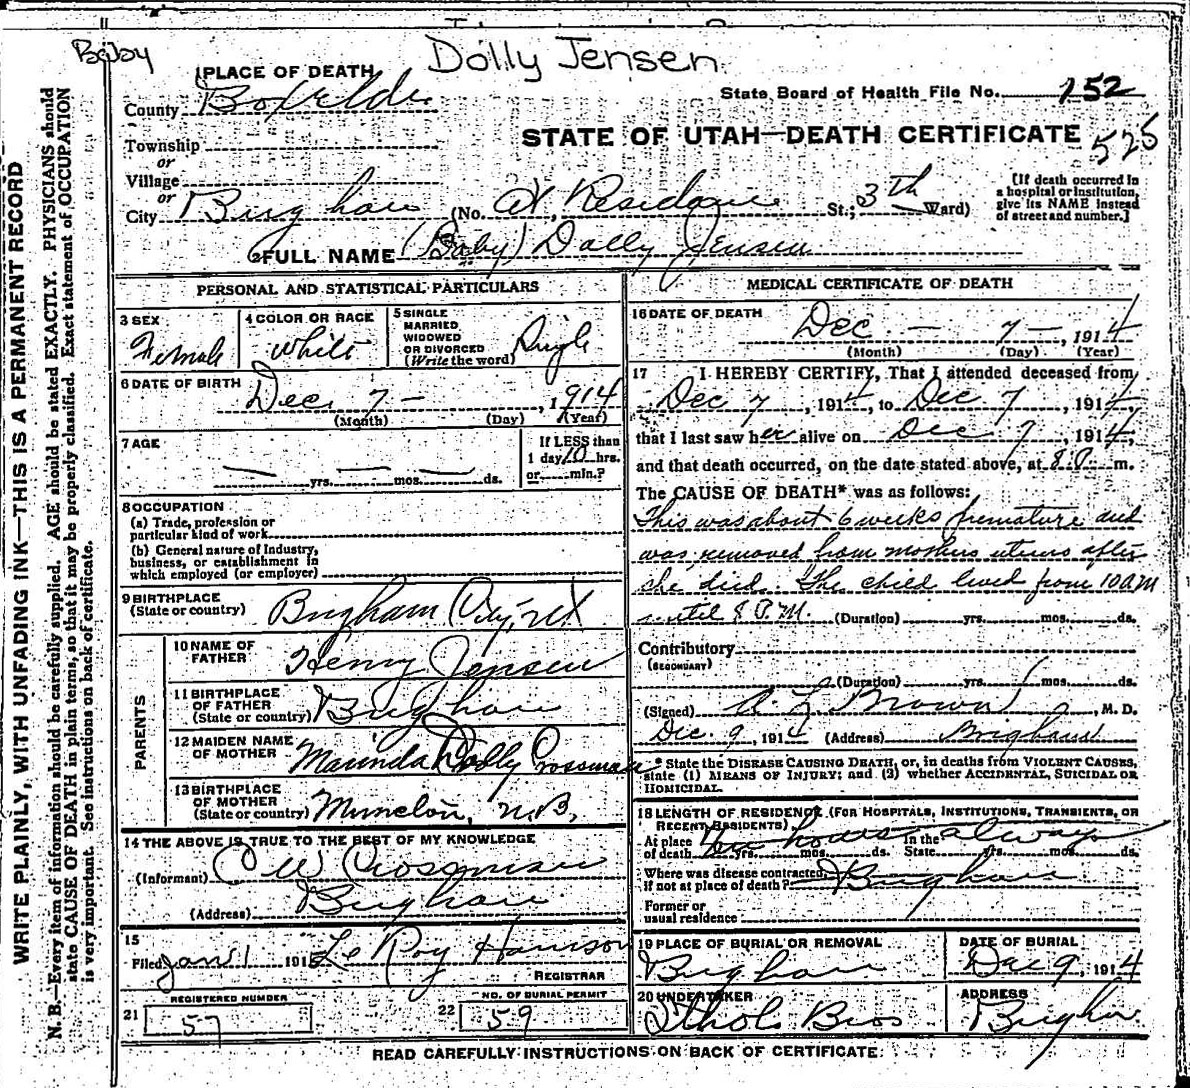 Baby
Dolly Jensen
1 PLACE OF DEATH
County Boxelder
State Board of Health File No. 152
STATE OF UTAH—DEATH CERTIFICATE
525
Township
or
Village
or
City Brigham (No. At Residence St.; 3th Ward)
[If death occurred in a hospital or institution, give its NAME instead of street and number.]
2 FULL NAME (Baby) Dolly Jensen
PERSONAL AND STATISTICAL PARTICULARS
3 SEX Female
4 COLOR OR RACE White
5 SINGLE MARRIED, WIDOWED OR DIVORCED (Write the word) Single
6 DATE OF BIRTH Dec. 7 - , 1914
(Month) (Day) (Year)
7 AGE — yrs. — mos. — ds.
If LESS than 1 day, 10 hrs. or min.?
8 OCCUPATION
(a) Trade, profession or particular kind of work
(b) General nature of Industry, business, or establishment in which employed (or employer)
9 BIRTHPLACE (State or country) Brigham City, Ut
PARENTS
10 NAME OF FATHER Henry Jensen
11 BIRTHPLACE OF FATHER (State or country) Brigham
12 MAIDEN NAME OF MOTHER Marinda Dolly Crossman
13 BIRTHPLACE OF MOTHER (State or country) N.B.
14 THE ABOVE IS TRUE TO THE BEST OF MY KNOWLEDGE
(Informant) C W Crossman
(Address) Brigham
15
Filed Jan 1 1915 Le Roy Harrison
REGISTRAR
21 REGISTERED NUMBER 57
22 NO. OF BURIAL PERMIT 59
MEDICAL CERTIFICATE OF DEATH
16 DATE OF DEATH Dec — 7 — , 1914
(Month) (Day) (Year)
17 I HEREBY CERTIFY, That I attended deceased from
Dec 7, 1914, to Dec. 7, 1914,
that I last saw her alive on Dec 7, 1914,
and that death occurred, on the date stated above, at 8 P. m.
The CAUSE OF DEATH* was as follows:
This was about 6 weeks premature and
was removed from mothers uterus after
she died. The child lived from 10 am
until 8 P.M. (Duration) yrs. mos. ds.
Contributory
(SECONDARY)
(Duration) yrs. mos. ds.
(Signed) Brown, M. D.
Dec. 9, 1914 (Address) Brigham
* State the DISEASE CAUSING DEATH, or, in deaths from VIOLENT CAUSES, state (1) MEANS OF INJURY; and (2) whether ACCIDENTAL, SUICIDAL OR HOMICIDAL.
18 LENGTH OF RESIDENCE (FOR HOSPITALS, INSTITUTIONS, TRANSIENTS, OR RECENT RESIDENTS).
At place of death Ten hours yrs. mos. ds. In the State always yrs. mos. ds.
Where was disease contracted, If not at place of death? Brigham
Former or usual residence
19 PLACE OF BURIAL OR REMOVAL Brigham
DATE OF BURIAL Dec 9, 1914
20 UNDERTAKER Bros
ADDRESS Brigham
READ CAREFULLY INSTRUCTIONS ON BACK OF CERTIFICATE
WRITE PLAINLY, WITH UNFADING INK—THIS IS A PERMANENT RECORD
N. B.—Every item of information should be carefully supplied. AGE should be stated EXACTLY. PHYSICIANS should
state CAUSE OF DEATH in plain terms, so that it may be properly classified. Exact statement of OCCUPATION
is very important. See instructions on back of certificate.